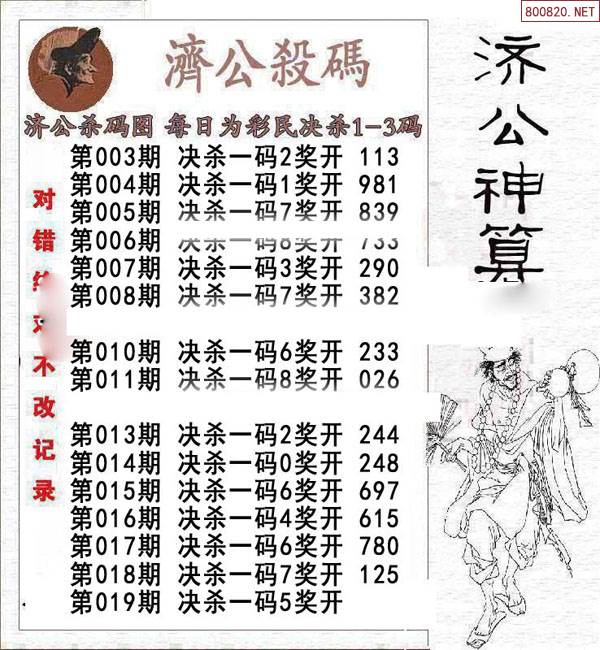 800820.NET
濟公殺碼
济公杀码图 每日为彩民决杀1-3码
第003期 决杀一码2奖开 113
第004期 决杀一码1奖开 981
第005期 决杀一码7奖开 839
第006期 决杀一码8奖开 733
第007期 决杀一码3奖开 290
第008期 决杀一码7奖开 382
第010期 决杀一码6奖开 233
第011期 决杀一码8奖开 026
第013期 决杀一码2奖开 244
第014期 决杀一码0奖开 248
第015期 决杀一码6奖开 697
第016期 决杀一码4奖开 615
第017期 决杀一码6奖开 780
第018期 决杀一码7奖开 125
第019期 决杀一码5奖开
对错 不改记录
济公神算